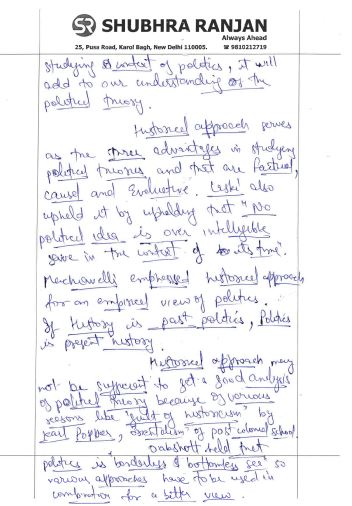 SR SHUBHRA RANJAN
Always Ahead
25, Pusa Road, Karol Bagh, New Delhi 110005. ☎ 9810212719
studying context of politics, it will
add to our understanding of the
political theory.
Historical approach serves
as the three advantages in studying
political theories and that are Factual,
causal and Evaluative. Laski also
upheld it by upholding that "No
political idea is ever intelligible
save in the context of its time".
Machiavelli emphasised historical approach
for an empirical view of politics.
If History is past politics, Politics
is present history.
Historical approach may
not be sufficient to get a good analysis
of political theory because of various
reasons like "guilt of historicism" by
Karl Popper, orientalism of post colonial school.
Oakshott held that
politics is "borderless & bottomless sea" so
various approaches have to be used in
combination for a better view.